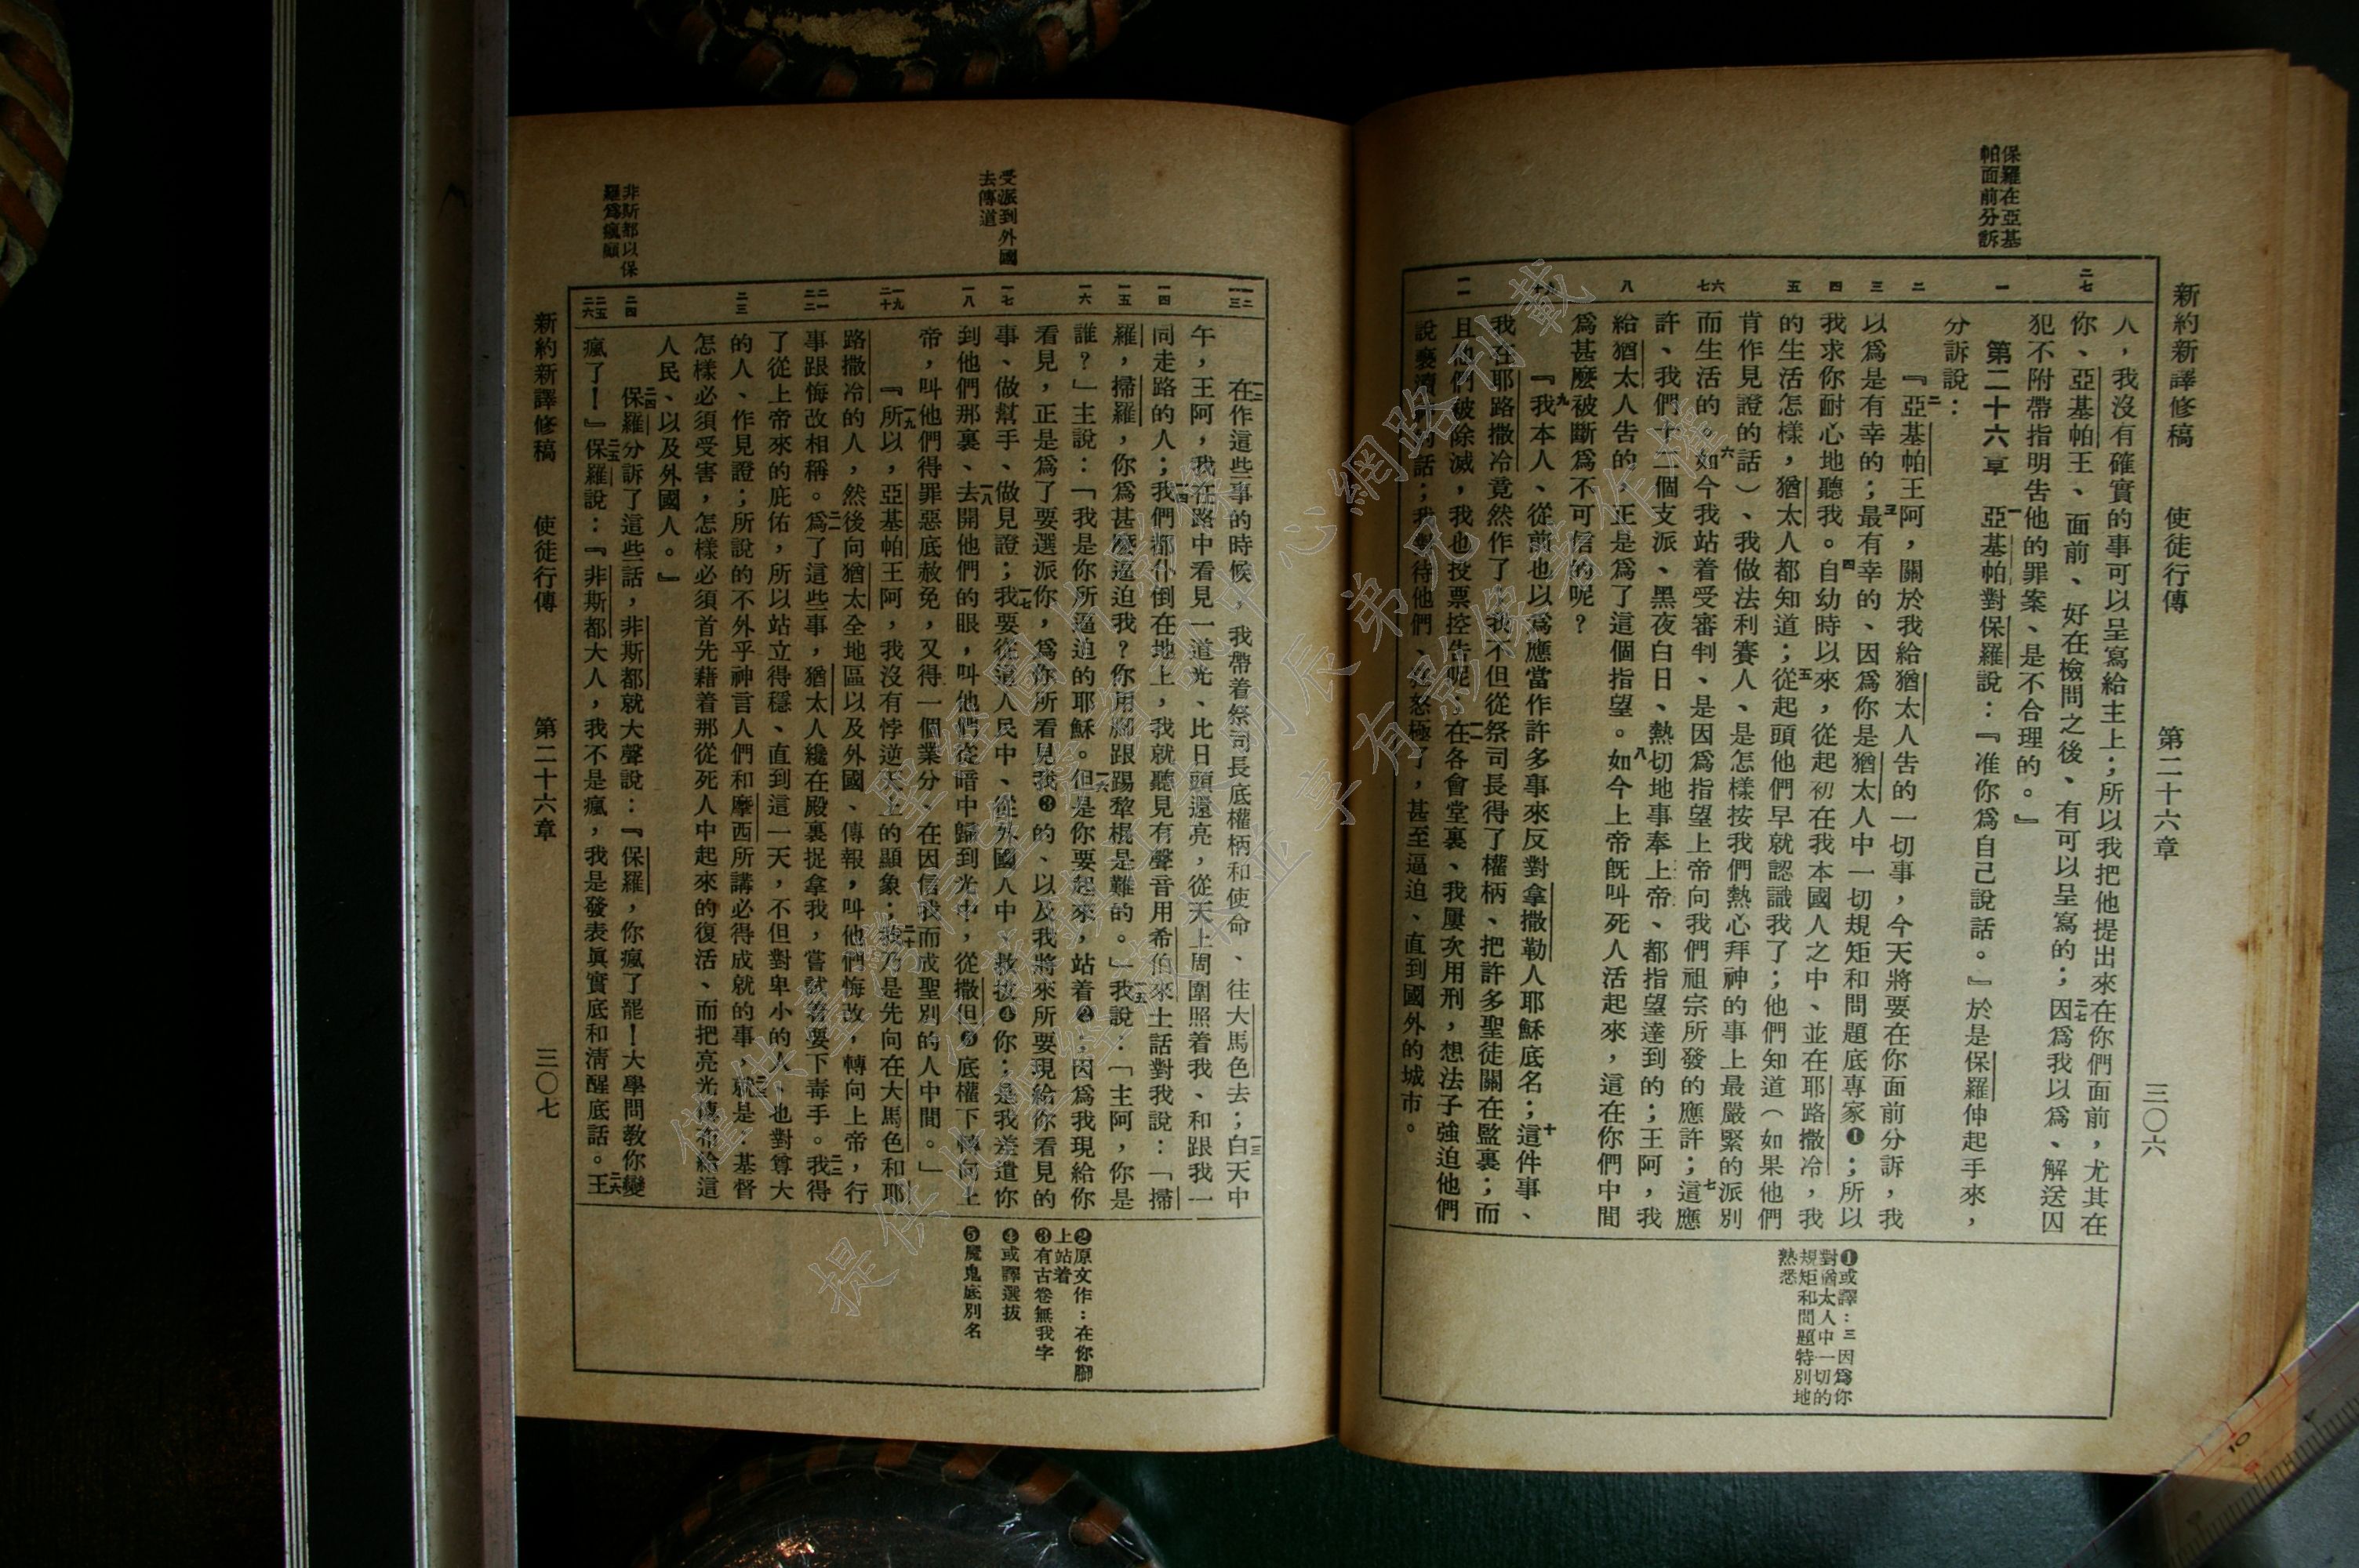 新約新譯修稿　使徒行傳　第二十六章　三〇六
保羅在亞基
帕面前分訴
二七
一
二
三
四
五
六
七
八
九
十
一一
人，我沒有確實的事可以呈寫給主上；所以我把他提出來在你們面前，尤其在
你、亞基帕王、面前、好在檢問之後、有可以呈寫的；二七因爲我以爲、解送囚
犯不附帶指明告他的罪案、是不合理的。』
第二十六章　一亞基帕對保羅說：『准你爲自己說話。』於是保羅伸起手來，
分訴說：
二『亞基帕王阿，關於我給猶太人告的一切事，今天將要在你面前分訴，我
以爲是有幸的；三最有幸的、因爲你是猶太人中一切規矩和問題底專家❶；所以
我求你耐心地聽我。四自幼時以來，從起初在我本國人之中、並在耶路撒冷，我
的生活怎樣，猶太人都知道；五從起頭他們早就認識我了；他們知道（如果他們
肯作見證的話）、我做法利賽人、是怎樣按我們熱心拜神的事上最嚴緊的派別
而生活的。六如今我站着受審判、是因爲指望上帝向我們祖宗所發的應許；七這應
許、我們十二個支派、黑夜白日、熱切地事奉上帝、都指望達到的；王阿，我
給猶太人告的、正是爲了這個指望。八如今上帝旣叫死人活起來，這在你們中間
爲甚麼被斷爲不可信的呢？
九『我本人、從前也以爲應當作許多事來反對拿撒勒人耶穌底名；十這件事、
我在耶路撒冷竟然作了；我不但從祭司長得了權柄、把許多聖徒關在監裏；而
且他們被除滅，我也投票控告呢；一一在各會堂裏、我屢次用刑，想法子強迫他們
說褻瀆的話；我對待他們、狂怒極了，甚至逼迫、直到國外的城市。
❶或譯：三因爲你
對猶太人中一切的
規矩和問題特別地
熟悉
受派到外國
去傳道
非斯都以保
羅爲瘋癲
一二
一三
一四
一五
一六
一七
一八
一九
二十
二一
二二
二三
二四
二五
二六
一二在作這些事的時候，我帶着祭司長底權柄和使命、往大馬色去；一三白天中
午，王阿，我在路中看見一道光、比日頭還亮，從天上周圍照着我、和跟我一
同走路的人；一四我們都仆倒在地上，我就聽見有聲音用希伯來土話對我說：「掃
羅，掃羅，你爲甚麼逼迫我？你用腳跟踢犂棍是難的。」一五我說：「主阿，你是
誰？」主說：「我是你所逼迫的耶穌。一六但是你要起來，站着❷，因爲我現給你
看見，正是爲了要選派你，爲你所看見我❸的、以及我將來所要現給你看見的
事、做幫手、做見證；一七我要從這人民中、從外國人中、救拔❹你；是我差遣你
到他們那裏、一八去開他們的眼，叫他們從暗中歸到光中，從撒但❺底權下轉向上
帝，叫他們得罪惡底赦免，又得一個業分、在因信我而成聖別的人中間。」
一九『所以，亞基帕王阿，我沒有悖逆天上的顯象；二十我乃是先向在大馬色和耶
路撒冷的人，然後向猶太全地區以及外國、傳報，叫他們悔改，轉向上帝，行
事跟悔改相稱。二一爲了這些事，猶太人纔在殿裏捉拿我，嘗試着要下毒手。二二我得
了從上帝來的庇佑，所以站立得穩、直到這一天，不但對卑小的人，也對尊大
的人、作見證；所說的不外乎神言人們和摩西所講必得成就的事，二三就是：基督
怎樣必須受害，怎樣必須首先藉着那從死人中起來的復活、而把亮光傳布給這
人民、以及外國人。』
二四保羅分訴了這些話，非斯都就大聲說：『保羅，你瘋了罷！大學問教你變
瘋了！』二五保羅說：『非斯都大人，我不是瘋，我是發表眞實底和清醒底話。二六王
❷原文作：在你腳
上站着
❸有古卷無我字
❹或譯選拔
❺魔鬼底別名
新約新譯修稿　使徒行傳　第二十六章　三〇七
10